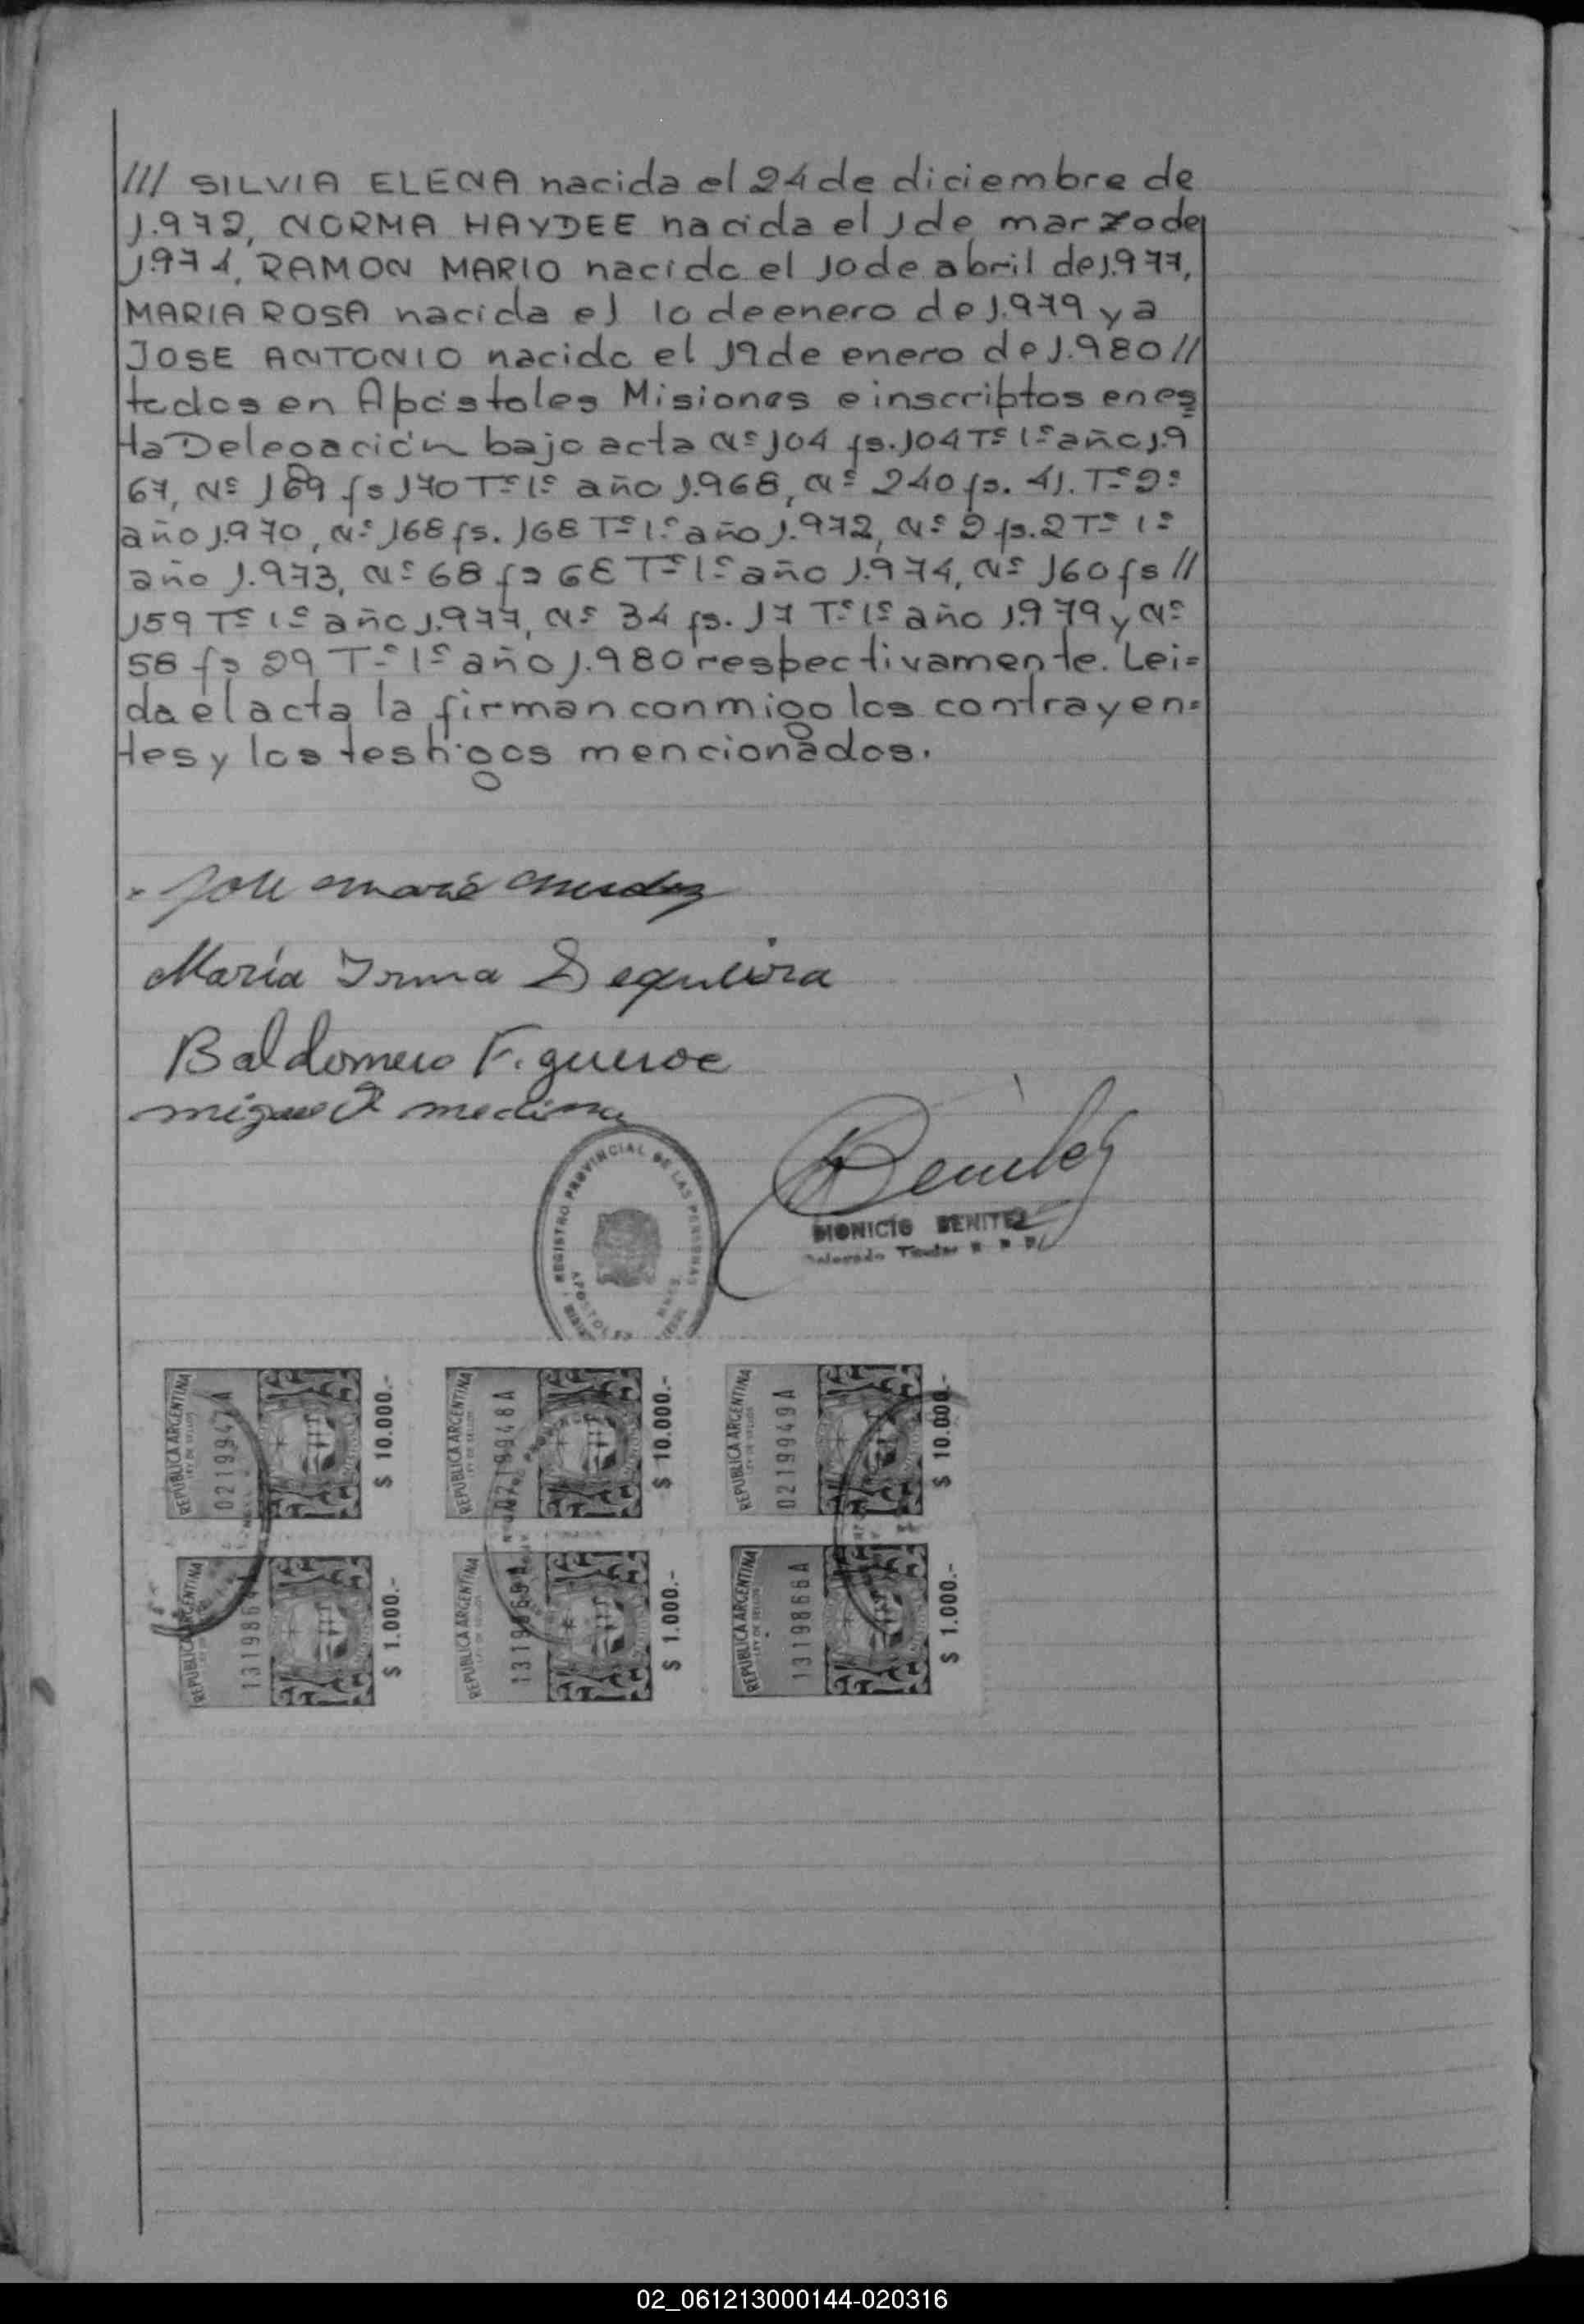 /// SILVIA ELENA nacida el 24 de diciembre de
1.972, NORMA HAYDEE nacida el 1 de marzo de
1.974, RAMON MARIO nacido el 10 de abril de 1.977,
MARIA ROSA nacida el 10 de enero de 1.979 y a
JOSE ANTONIO nacido el 19 de enero de 1.980 //
todos en Apóstoles Misiones e inscriptos en es
ta Delegación bajo acta Nº 104 fs. 104 Tº 1º año 1.9
67, Nº 169 fs 170 Tº 1º año 1.968, Nº 240 fs. 41. Tº 2º
año 1.970, Nº 168 fs. 168 Tº 1º año 1.972, Nº 2 fs. 2 Tº 1º
año 1.973, Nº 68 fs 68 Tº 1º año 1.974, Nº 160 fs //
159 Tº 1º año 1.977, Nº 34 fs. 17 Tº 1º año 1.979 y Nº
58 fs 29 Tº 1º año 1.980 respectivamente. Lei=
da el acta la firman conmigo los contrayen=
tes y los testigos mencionados.
Jose Maria
María Irma Sequeira
Baldomero Figueroa
miguel medina
Benitez
DIONICIO BENITEZ
Delegado Titular
REGISTRO PROVINCIAL DE LAS PERSONAS
APOSTOLES
REPUBLICA ARGENTINA
LEY DE SELLOS
0219947A
$ 10.000.-
REPUBLICA ARGENTINA
LEY DE SELLOS
0219948A
$ 10.000.-
REPUBLICA ARGENTINA
LEY DE SELLOS
0219949A
$ 10.000.-
REPUBLICA ARGENTINA
$ 1.000.-
REPUBLICA ARGENTINA
LEY DE SELLOS
$ 1.000.-
REPUBLICA ARGENTINA
LEY DE SELLOS
1319866A
$ 1.000.-
02_061213000144-020316